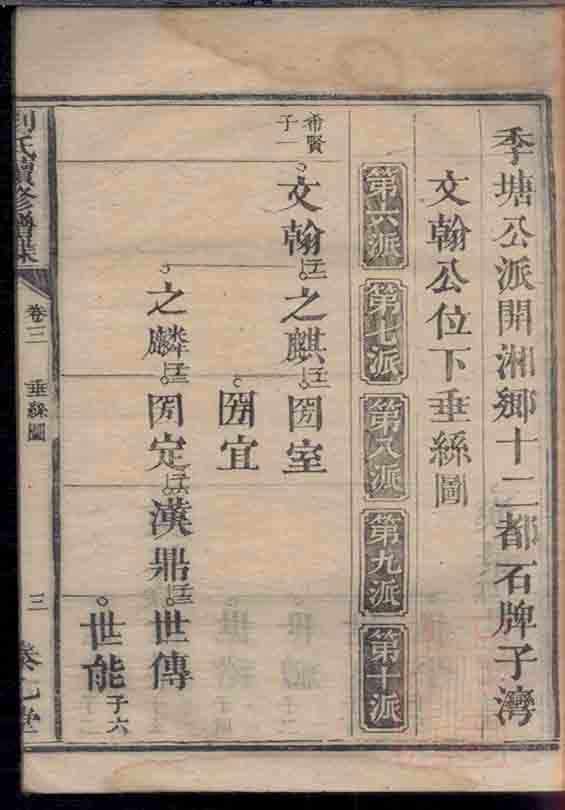 季塘公派開湘鄉十二都石牌子灣
文翰公位下垂絲圖
第六派
第七派
第八派
第九派
第十派
希賢
子一
文翰
之麒
圀室
圀宜
之麟
圀定
漢鼎
世傳
世能
子六
氏續修譜
卷三
垂絲圖
三